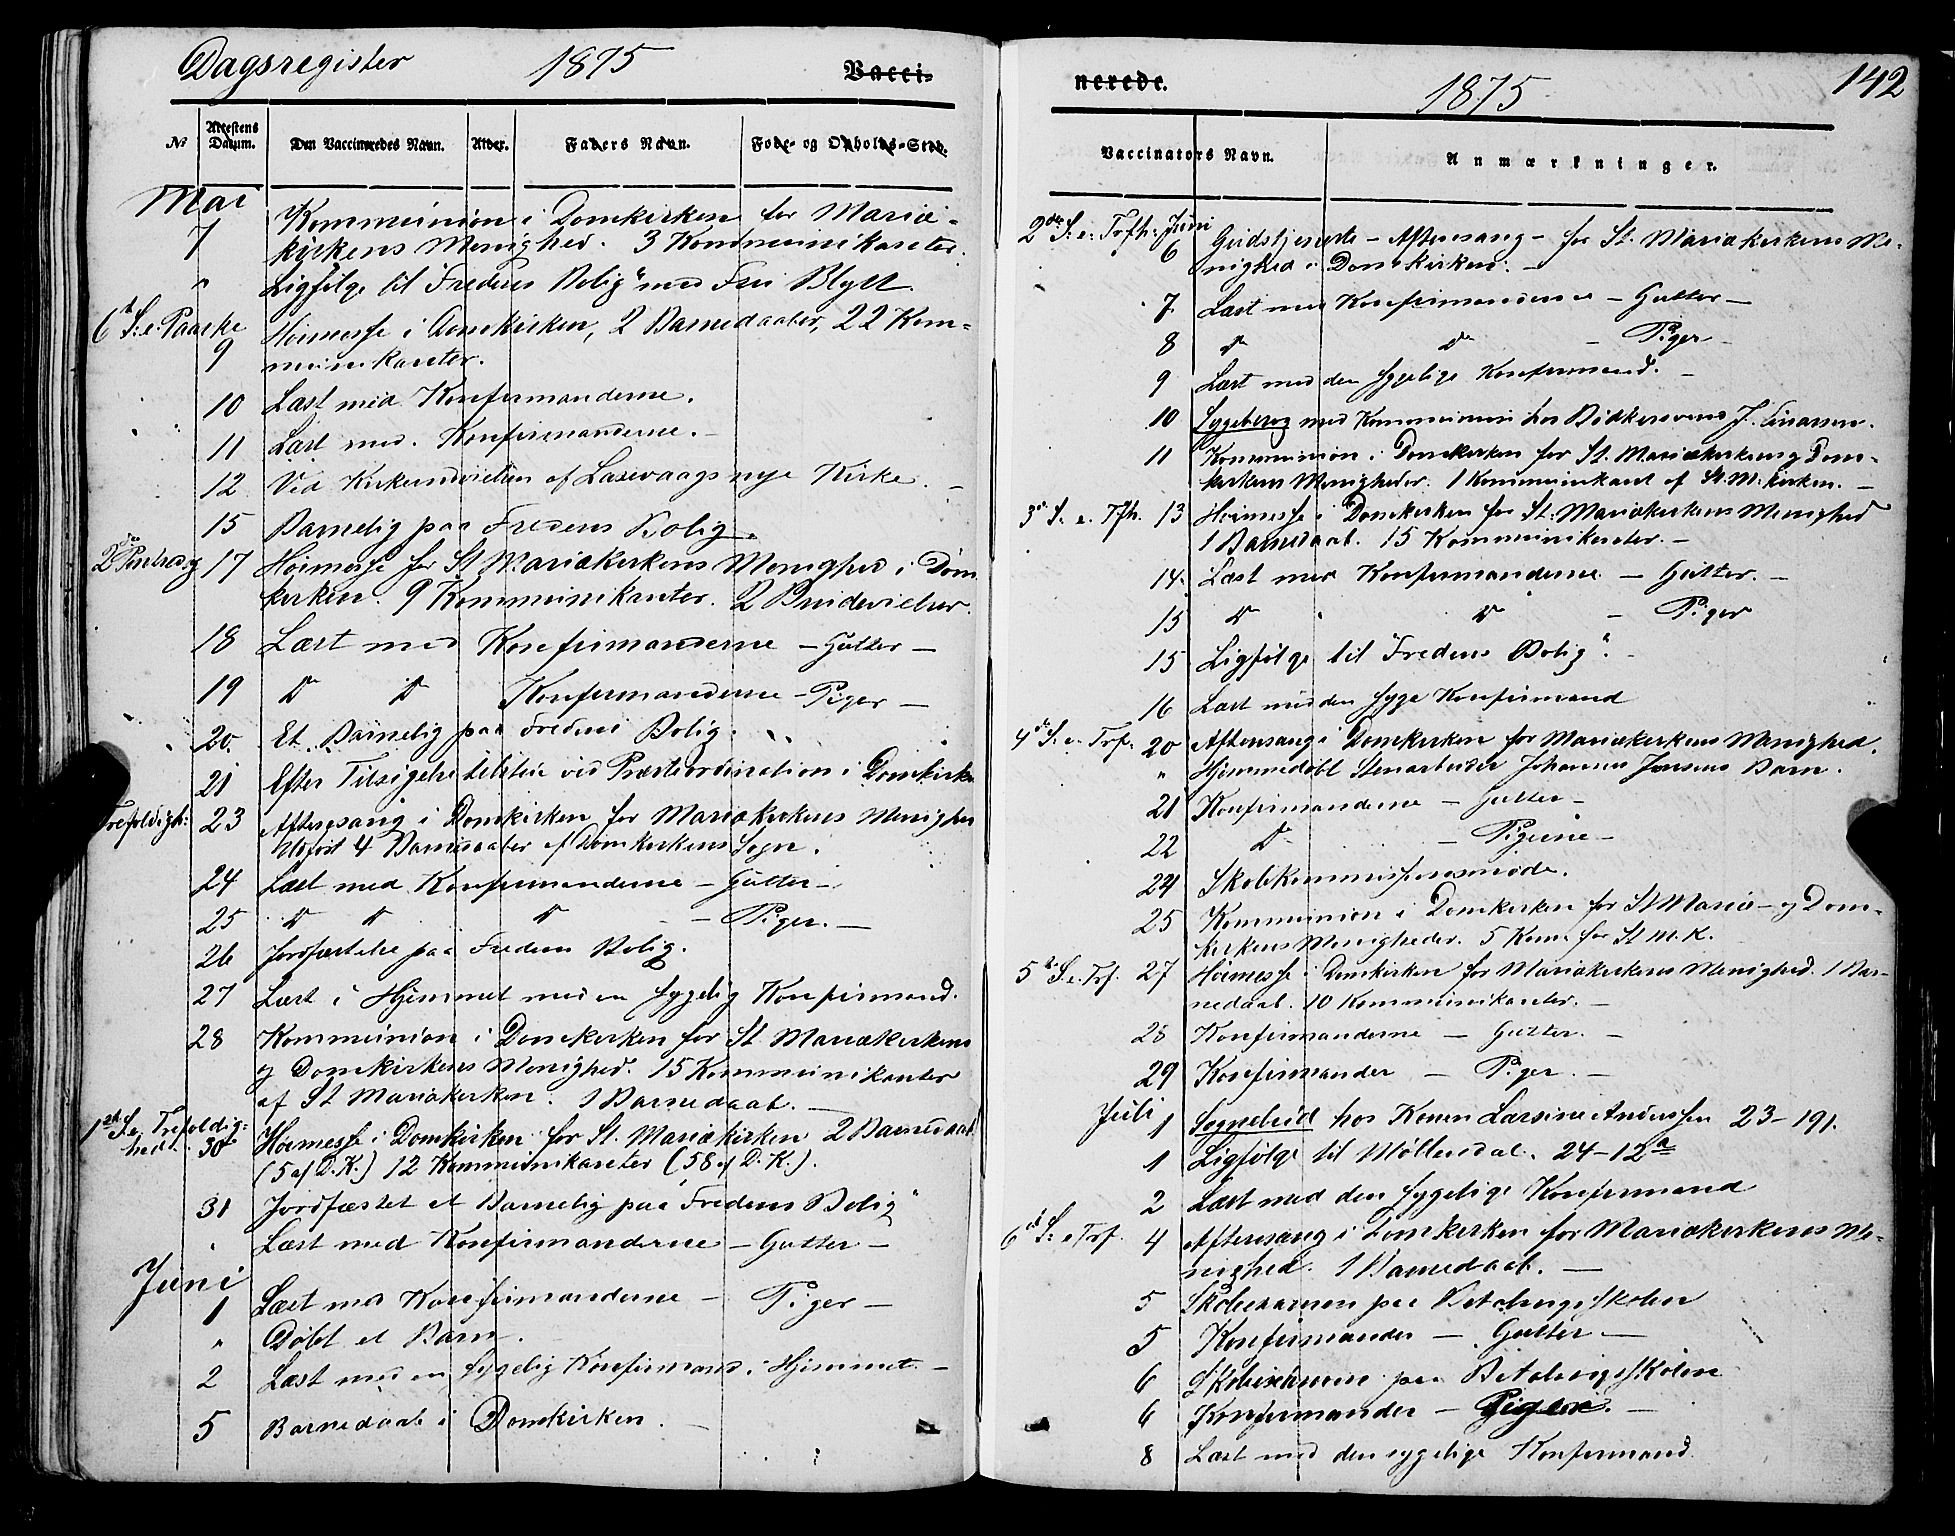 Dagsregister 1875 Vacci-
No Attestens Datum. Den Vaccineredes Navn. Alder. Faders Navn. Føde- og Opholds-Sted.
Mai
7 Kommunion i Domkirken for Mariæ-
kirkens Menighed. 3 Kommunikanter.
" Ligfølge til "Fredens Bolig" med Fru Blytt
6te S. e. Paaske
9 Høimesse i Domkirken, 2 Barnedaaber, 22 Kom-
munikanter.
10 Læst med Konfirmanderne.
11 Læst med Konfirmanderne.
12 Ved Kirkeindvielsen af Laxevaags nye Kirke.
15 Barnelig paa Fredens Bolig.
2den Pintsedag 17 Høimesse for St Mariækirkens Menighed i Dom
kirken. 9 Kommunikanter. 2 Brudevielser.
18 Læst med Konfirmanderne – Gutter –
19 Do Do Konfirmanderne – Piger –
20. Et Barnelig paa Fredens Bolig.
21 Efter Tilsigelse tilstede ved Præsteordination i Domkirken
Trefoldigh: 23 Aftensang i Domkirken for Mariækirkens Menighed
Udført 4 Barnedaaber af Domkirkens Sogn.
24 Læst med Konfirmanderne – Gutter –
25 Do Do Do – Piger. –
26 Jordfæstelse paa Fredens Bolig.
27 Læst i Hjemmet med en sygelig Konfirmand.
28 Kommunion i Domkirken for St Mariækirkens
og Domkirkens Menighed. 15 Kommunikanter
af St Mariækirken. 1 Barnedaab. –
1ste S. e. Trefoldig-
hed. 30 Høimesse i Domkirken for St. Mariækirken 2 Barnedaab
(5 af D. K.) 12 Kommunikanter (58 af D. K.).
31 Jordfæstet et Barnelig paa "Fredens Bolig"
" Læst med Konfirmanderne – Gutter –
Juni
1 Læst med Konfirmanderne – Piger –
" Døbt et Barn.
2 Læst med en sygelig Konfirmand i Hjemmet. –
5 Barnedaab i Domkirken. –
nerede. 1875 142
Vaccinators Navn. Anmærkninger.
2den S. e. Trfh. Juni
6 Gudstjeneste – Aftensang – for St. Mariækirkens Me-
nighed i Domkirken. –
7 Læst med Konfirmanderne – Gutter –
8 Do Do – Piger –
9 Læst med den sygelige Konfirmand. –
10 Sygebesøg med Kommunion hos Bødkersvend J. Einarsen.
11 Kommunion i Domkirken for St. Mariækirken og Dom-
kirkens Menigheder. 1 Kommunikant af St. M. kirken. –
3die S. e. Tfh. 13 Høimesse i Domkirken for St. Mariækirkens Menighed
1 Barnedaab. 15 Kommunikanter. –
14. Læst med Konfirmanderne – Gutter. –
15 Do Do – Piger
15 Ligfølge til "Fredens Bolig". –
16 Læst med den syge Konfirmand
4de S. e. Tref. 20 Aftensang i Domkirken for Mariækirkens Menighed.
" Hjemmedøbt Stenarbeider Johannes Jensens Barn.
21 Konfirmanderne – Gutter –
22 Do – Pigerne –
24 Skolekommissionsmøde.
25 Kommunion i Domkirken for St Mariæ- og Dom-
kirkens Menigheder. 5 Kom. for St M. K.
5te S. e. Tref. 27 Høimesse i Domkirken for Mariækirkens Menighed. 1 Bar-
nedaab. 10 Kommunikanter. –
28 Konfirmanderne – Gutter. –
29 Konfirmander – Piger. –
Juli
1 Sognebud hos Konen Larsine Anderssen 23–191.
1 Ligfølge til Møllendal. 24–12a
2 Læst med den sygelige Konfirmand
6te S. e. Tref. 4 Aftensang i Domkirken for Mariækirkens Me-
nighed. 1 Barnedaab. –
5 Skoleexamen paa Betalingsskolen
5 Konfirmander – Gutter –
6 Skoleexamen paa Betalingsskolen
6 Konfirmander – Piger. –
8 Læst med den sygelige Konfirmand.